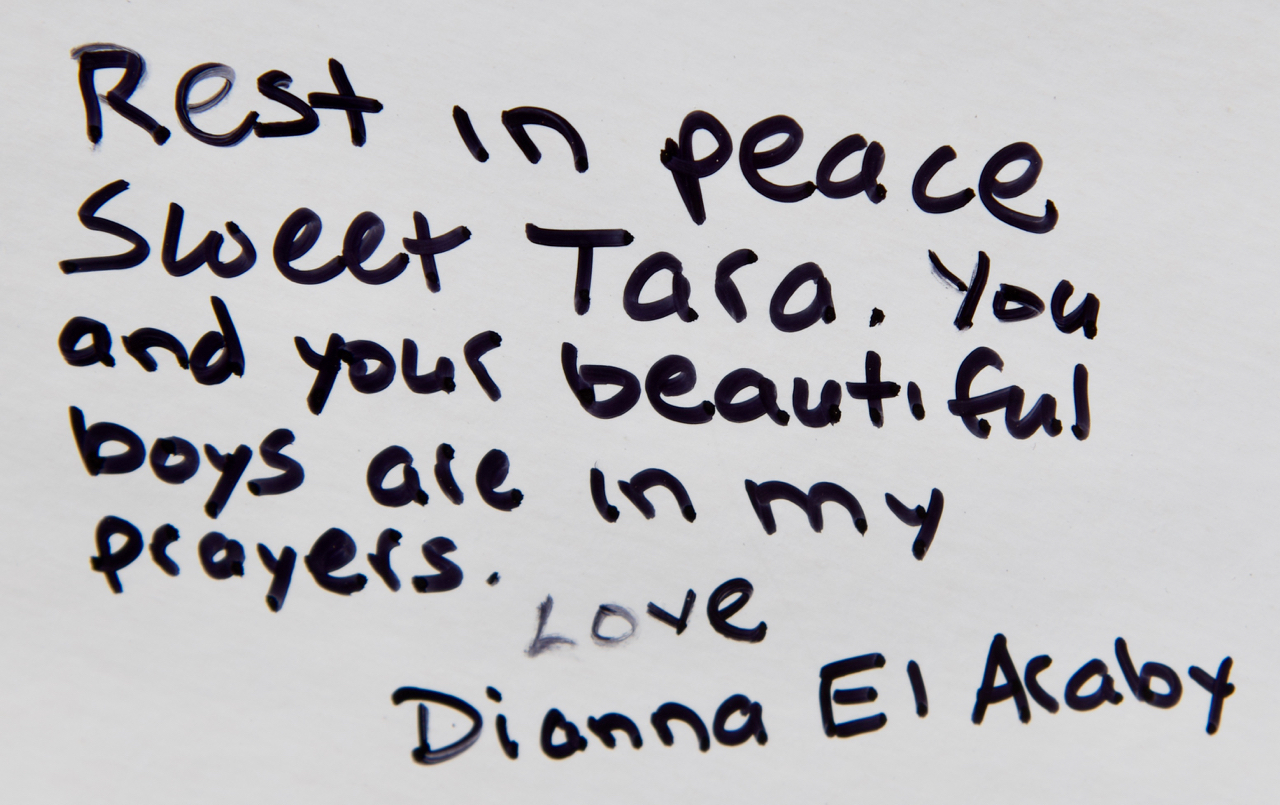 Rest in peace
Sweet Tara. You
and your beautiful
boys are in my
prayers.
Love
Dianna El Araby